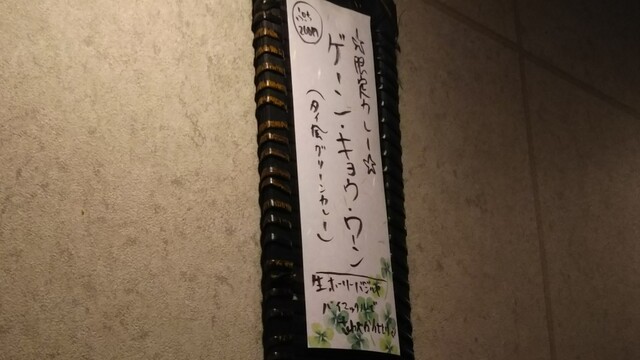 ☆限定カレー☆
ゲーン・キョウ・ワーン
(タイ風グリーンカレー)
生ホーリーバジル
バイマックルで
さわやか